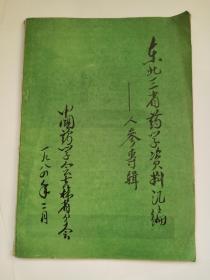 东北三省药学资料汇编
——人参专辑
中国药学会吉林省分会
一九八四年二月